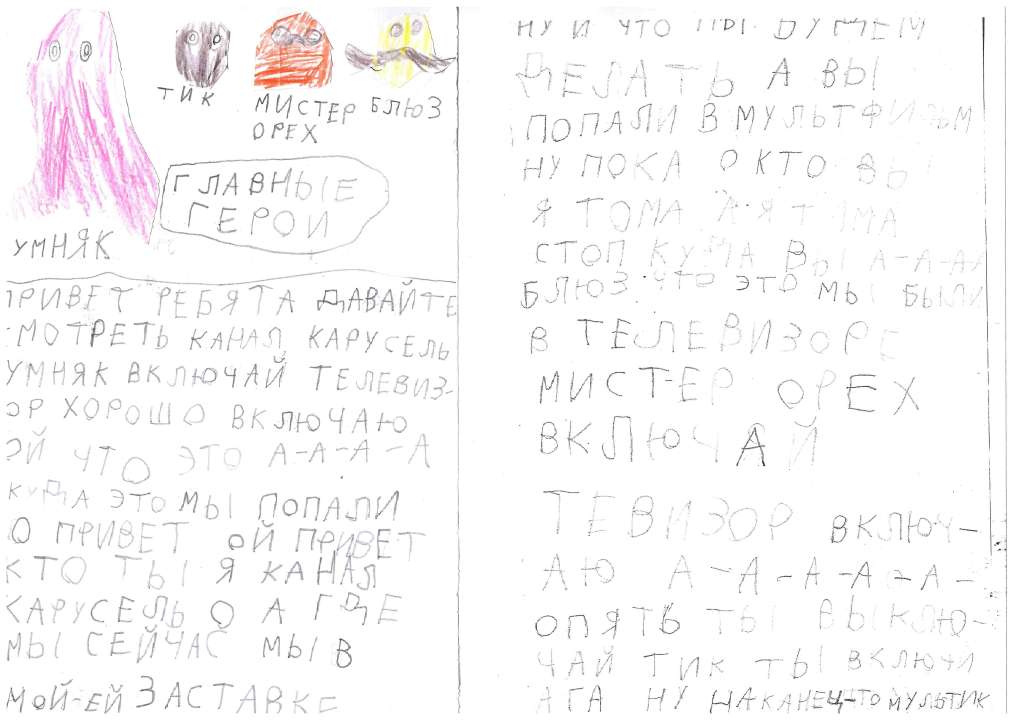 ТИК
МИСТЕР БЛЮЗ
ОРЕХ
ГЛАВНЫЕ
ГЕРОИ
УМНЯК
ПРИВЕТ РЕБЯТА ДАВАЙТЕ
СМОТРЕТЬ КАНАЛ КАРУСЕЛЬ
УМНЯК ВКЛЮЧАЙ ТЕЛЕВИЗ-
ОР ХОРОШО ВКЛЮЧАЮ
ОЙ ЧТО ЭТО А-А-А-А
КУДА ЭТО МЫ ПОПАЛИ
О ПРИВЕТ ОЙ ПРИВЕТ
КТО ТЫ Я КАНАЛ
КАРУСЕЛЬ О А ГДЕ
МЫ СЕЙЧАС МЫ В
МОЙ-ЕЙ ЗАСТАВКЕ
НУ И ЧТО МЫ БУДЕМ
ДЕЛАТЬ А ВЫ
ПОПАЛИ В
НУ ПОКА О КТО ВЫ
Я ТОМА А Я ТИМА
СТОП ВЫ А-А-А
БЛЮЗ ЧТО ЭТО МЫ БЫЛИ
В ТЕЛЕВИЗОРЕ
МИСТ-ЕР ОРЕХ
ВКЛЮЧАЙ
ТЕВИЗОР ВКЛЮЧ-
АЮ А-А-А-А-А-
ОПЯТЬ ТЫ ВЫКЛЮ-
ЧАЙ ТИК ТЫ ВКЛЮЧИ
АГА НУ НАКАНЕЦ-ТО МУЛЬТИК